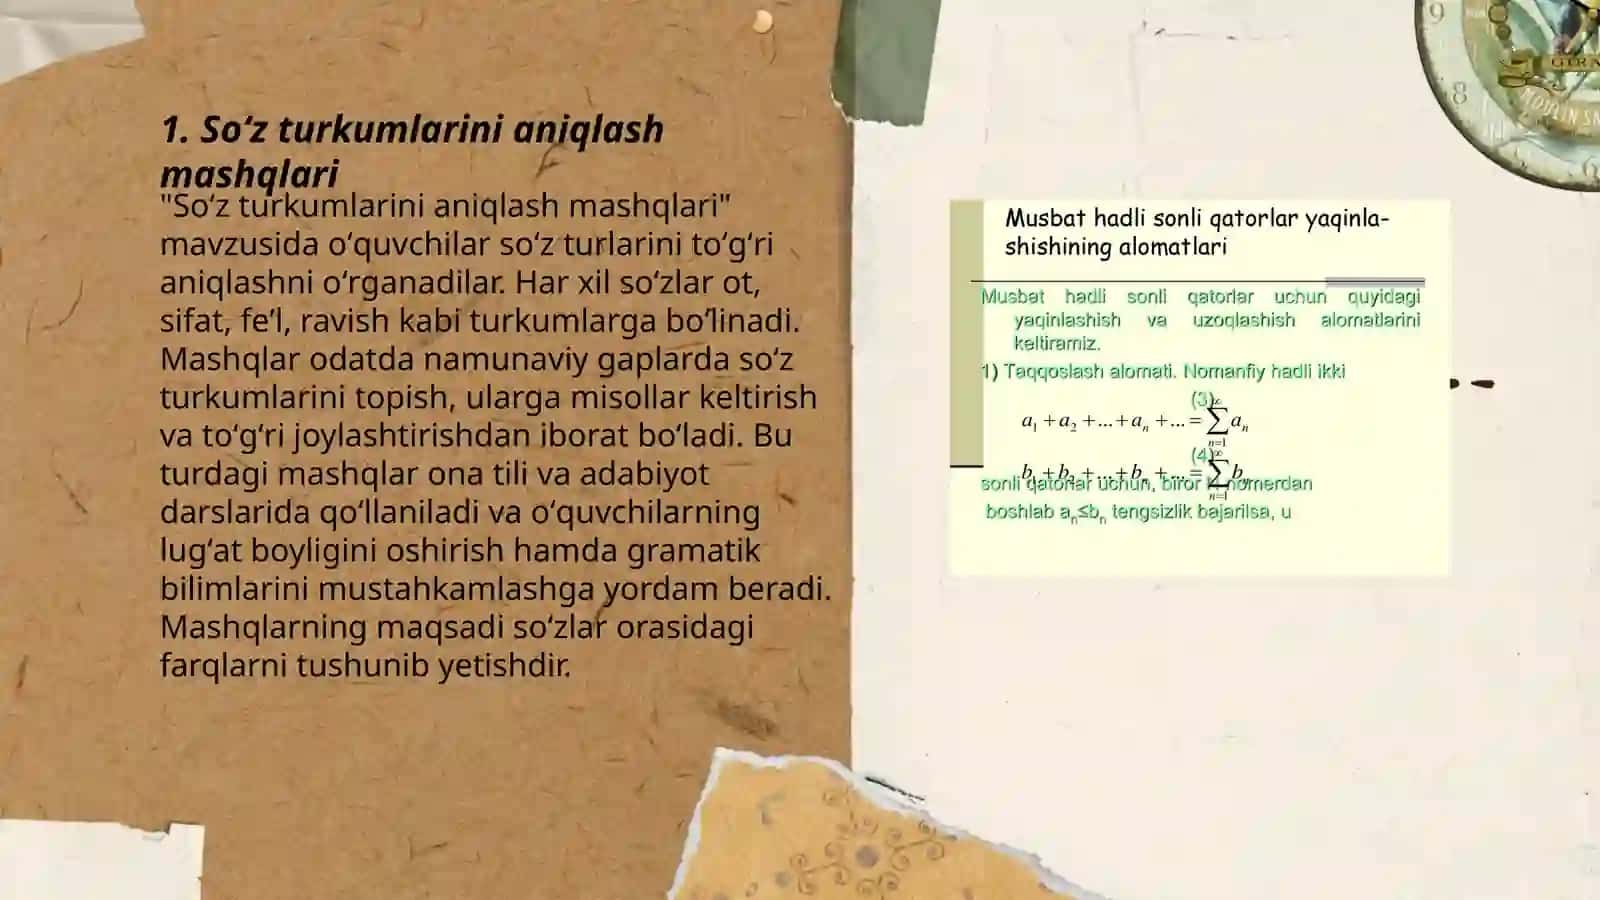 1. So‘z turkumlarini aniqlash
mashqlari
"So‘z turkumlarini aniqlash mashqlari"
mavzusida o‘quvchilar so‘z turlarini to‘g‘ri
aniqlashni o‘rganadilar. Har xil so‘zlar ot,
sifat, fe’l, ravish kabi turkumlarga bo‘linadi.
Mashqlar odatda namunaviy gaplarda so‘z
turkumlarini topish, ularga misollar keltirish
va to‘g‘ri joylashtirishdan iborat bo‘ladi. Bu
turdagi mashqlar ona tili va adabiyot
darslarida qo‘llaniladi va o‘quvchilarning
lug‘at boyligini oshirish hamda gramatik
bilimlarini mustahkamlashga yordam beradi.
Mashqlarning maqsadi so‘zlar orasidagi
farqlarni tushunib yetishdir.
Musbat hadli sonli qatorlar yaqinla-
shishining alomatlari
Musbat hadli sonli qatorlar uchun quyidagi
yaqinlashish va uzoqlashish alomatlarini
keltiramiz.
1) Taqqoslash alomati. Nomanfiy hadli ikki
(3)
a₁ + a₂ + ... + aₙ + ... = ∑ₙ₌₁^∞ aₙ
(4)
b₁ + b₂ + ... + bₙ + ... = ∑ₙ₌₁^∞ bₙ
sonli qatorlar uchun, biror N nomerdan
boshlab aₙ≤bₙ tengsizlik bajarilsa, u
9
8
6
MOULIN